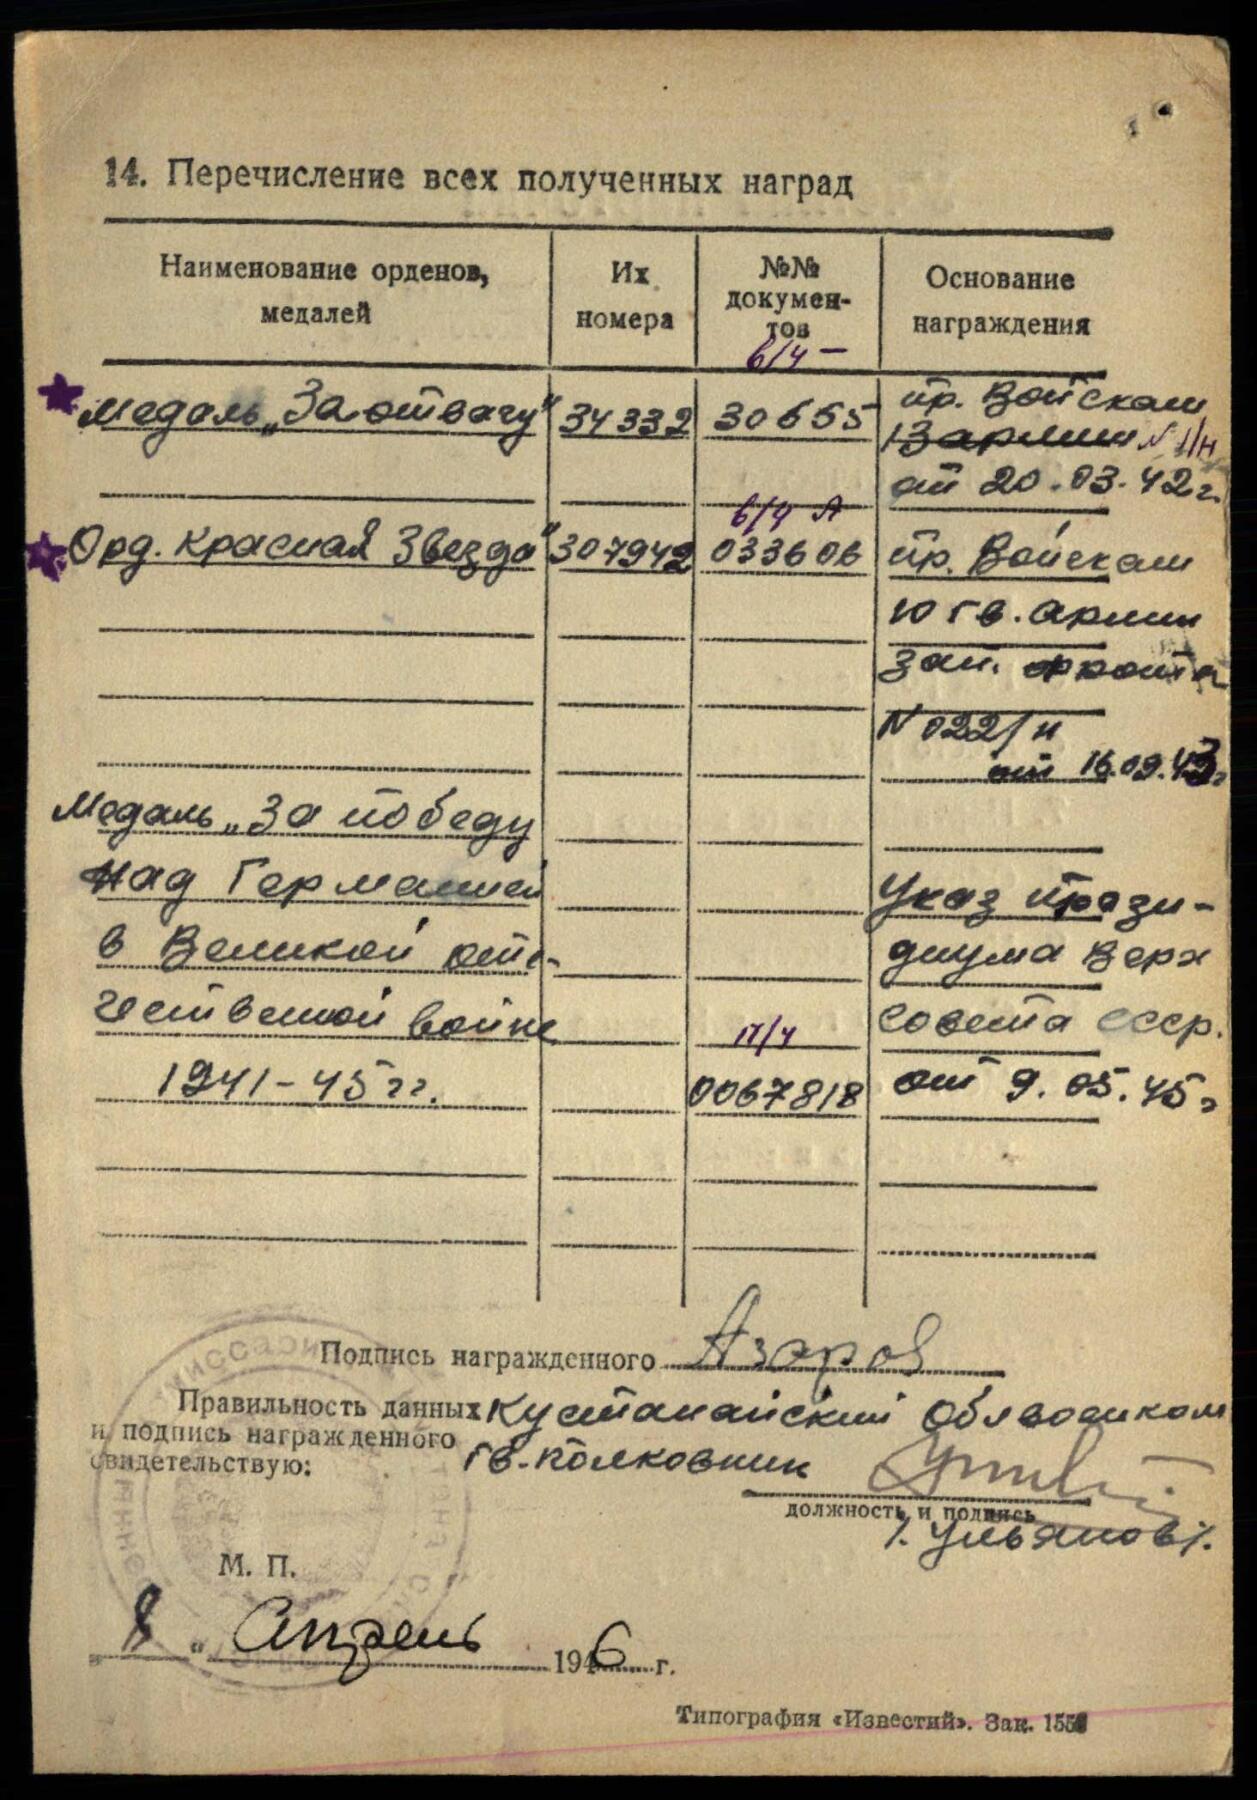 14. Перечисление всех полученных наград
Наименование орденов,
медалей
Их
номера
№№
докумен-
тов
Основание
награждения
в/ч —
Медаль „За отвагу" 34332 30655 пр. Войскам
13 армии N 1/н
от 20.03.42 г.
в/ч А
Орд. Красная Звезда" 307942 033606 пр. Войскам
10 гв. армии
Зап. фронта
N 022/н
от 16.09.43 г
Медаль „За победу
над Германией Указ Прези-
в Великой оте- диума Верх
чественной войне Совета СССР.
п/ч
1941-45 гг. 0067818 от 9.05.45 г
Подпись награжденного Азаров
Правильность данных Кустанайский Облвоенком
и подпись награжденного гв. полковник
свидетельствую:
должность и подпись
/. Ульянов /.
М. П.
„ 8 " Апрель 1946 г.
Типография «Известий». Зак.